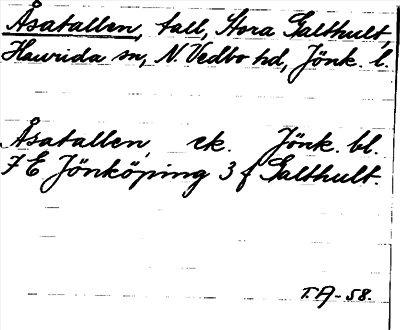 Åsatallen, tall, Stora Galthult,
Haurida sn, N. Vedbo hd, Jönk. l.
Åsatallen, ek. Jönk. bl.
7 E Jönköping 3 f Galthult.
T.A-58.